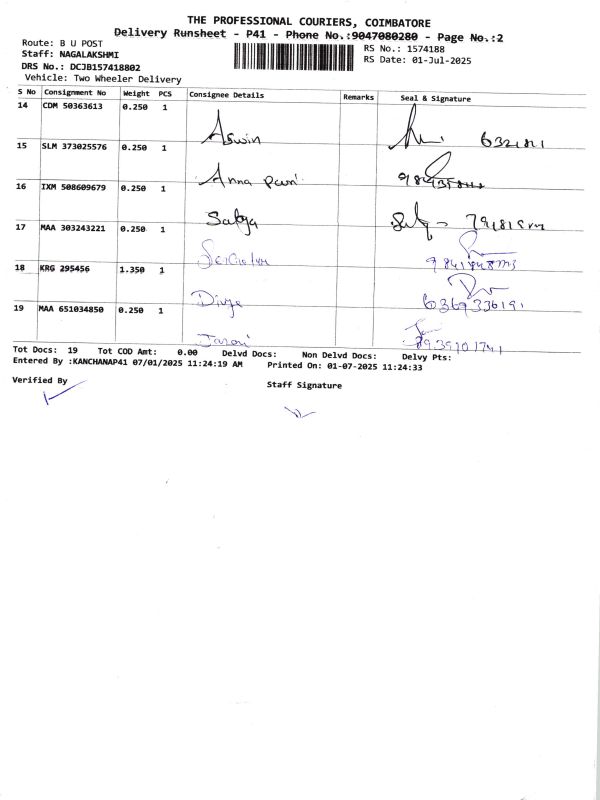 THE PROFESSIONAL COURIERS, COIMBATORE
Delivery Runsheet - P41 - Phone No.:9047080280 - Page No.:2
Route: B U POST
RS No.: 1574188
Staff: NAGALAKSHMI
RS Date: 01-Jul-2025
DRS No.: DCJB157418802
Vehicle: Two Wheeler Delivery
S No Consignment No Weight PCS Consignee Details Remarks Seal & Signature
14 CDM 50363613 0.250 1
Aswin
15 SLM 373025576 0.250 1
Anna
16 IXM 508609679 0.250 1
Satya
17 MAA 303243221 0.250 1
18 KRG 295456 1.350 1
Divya 6369336191
19 MAA 651034850 0.250 1
Tot Docs: 19 Tot COD Amt: 0.00 Delvd Docs: Non Delvd Docs: Delvy Pts:
Entered By :KANCHANAP41 07/01/2025 11:24:19 AM Printed On: 01-07-2025 11:24:33
Verified By
Staff Signature